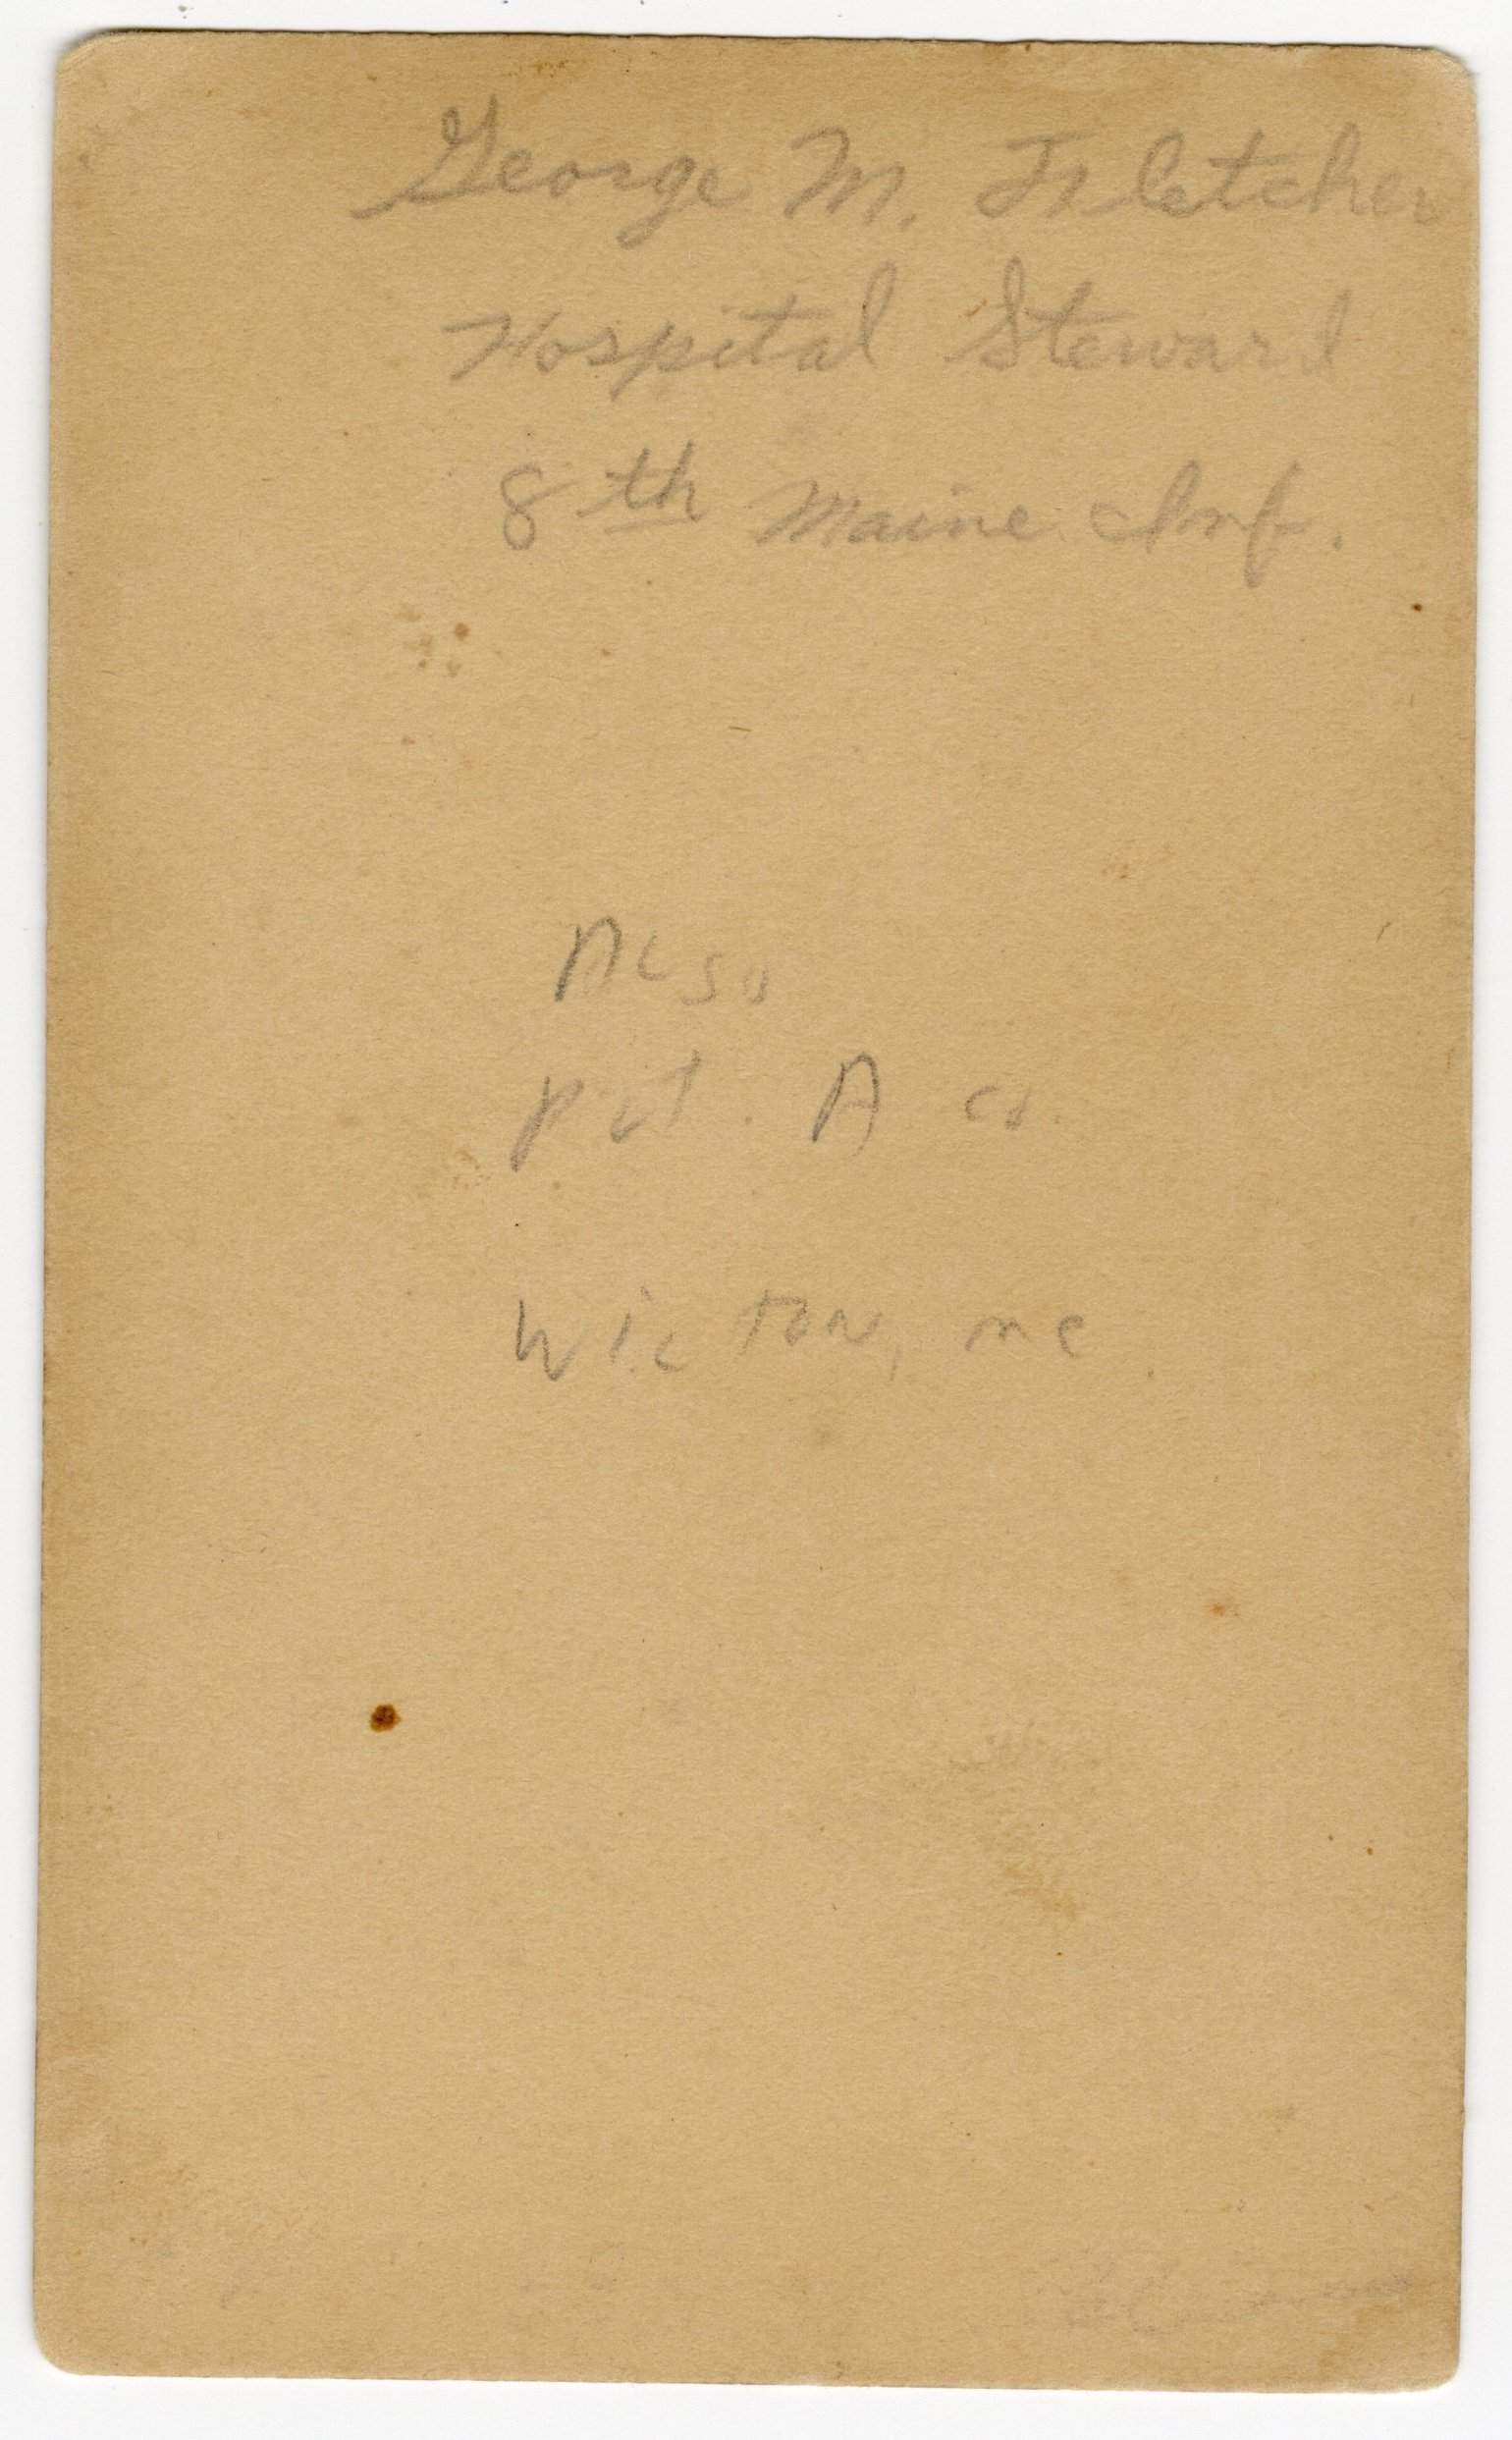 George M. Fletcher
Hospital Steward
8th Maine Inf.
ALSO
Pvt. A Co.
WILTON, ME